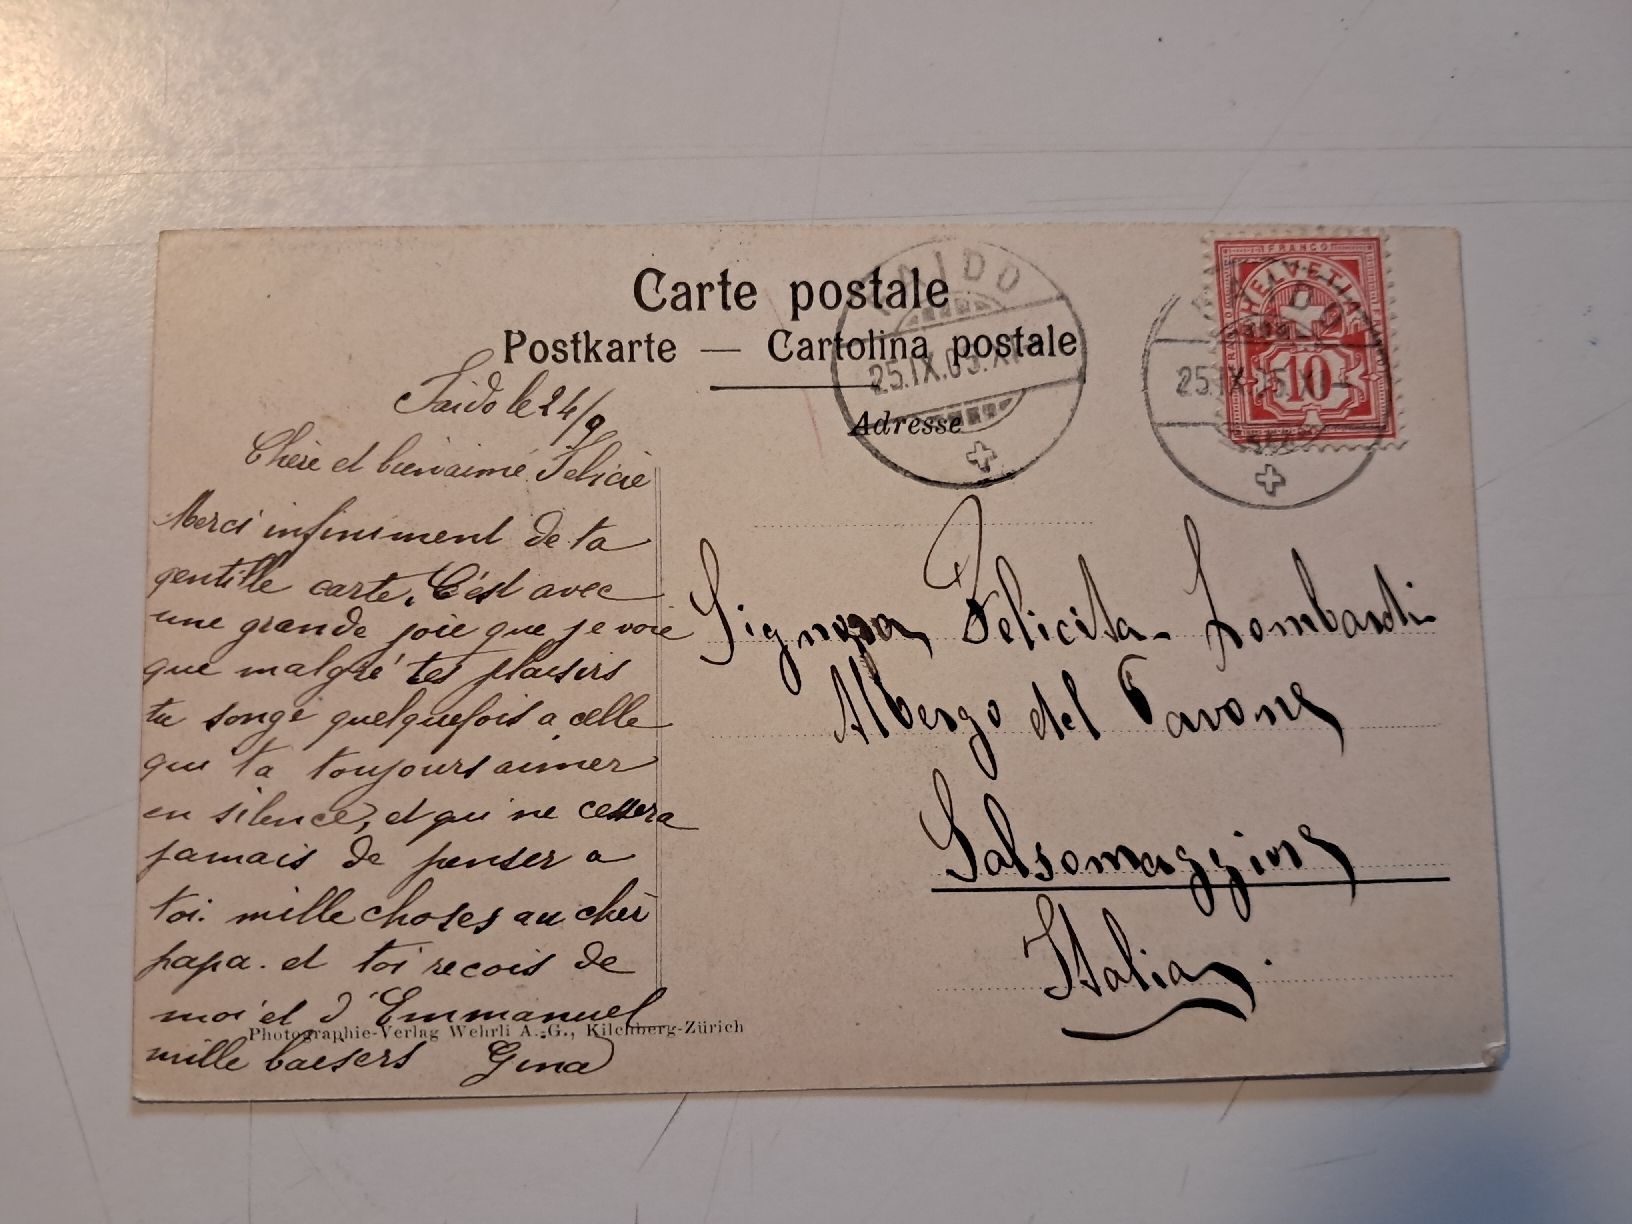 Carte postale
Postkarte — Cartolina postale
Adresse
FAIDO
25.IX.05.XI
FAIDO
25.IX.05.XI
FRANCO
HELVETIA
10
Faido le 24/9
Chère et bienaimé Felicie
Merci infiniment de ta
gentille carte. C'est avec
une grande joie que je voie
que malgré tes plaisirs
tu songe quelquefois a celle
qui ta toujours aimer
en silence, et qui ne cessera
jamais de penser a
toi. mille choses au cher
papa. et toi recois de
moi et d'Emmanuel
mille baesers Gina
Photographie-Verlag Wehrli A.-G., Kilchberg-Zürich
Signora Felicita Lombardi
Albergo del Pavone
Salsomaggiore
Italia.